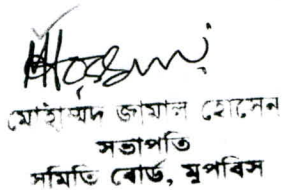 Hossain
মোহাম্মদ জামাল হোসেন
সভাপতি
সমিতি বোর্ড, মুপবিস